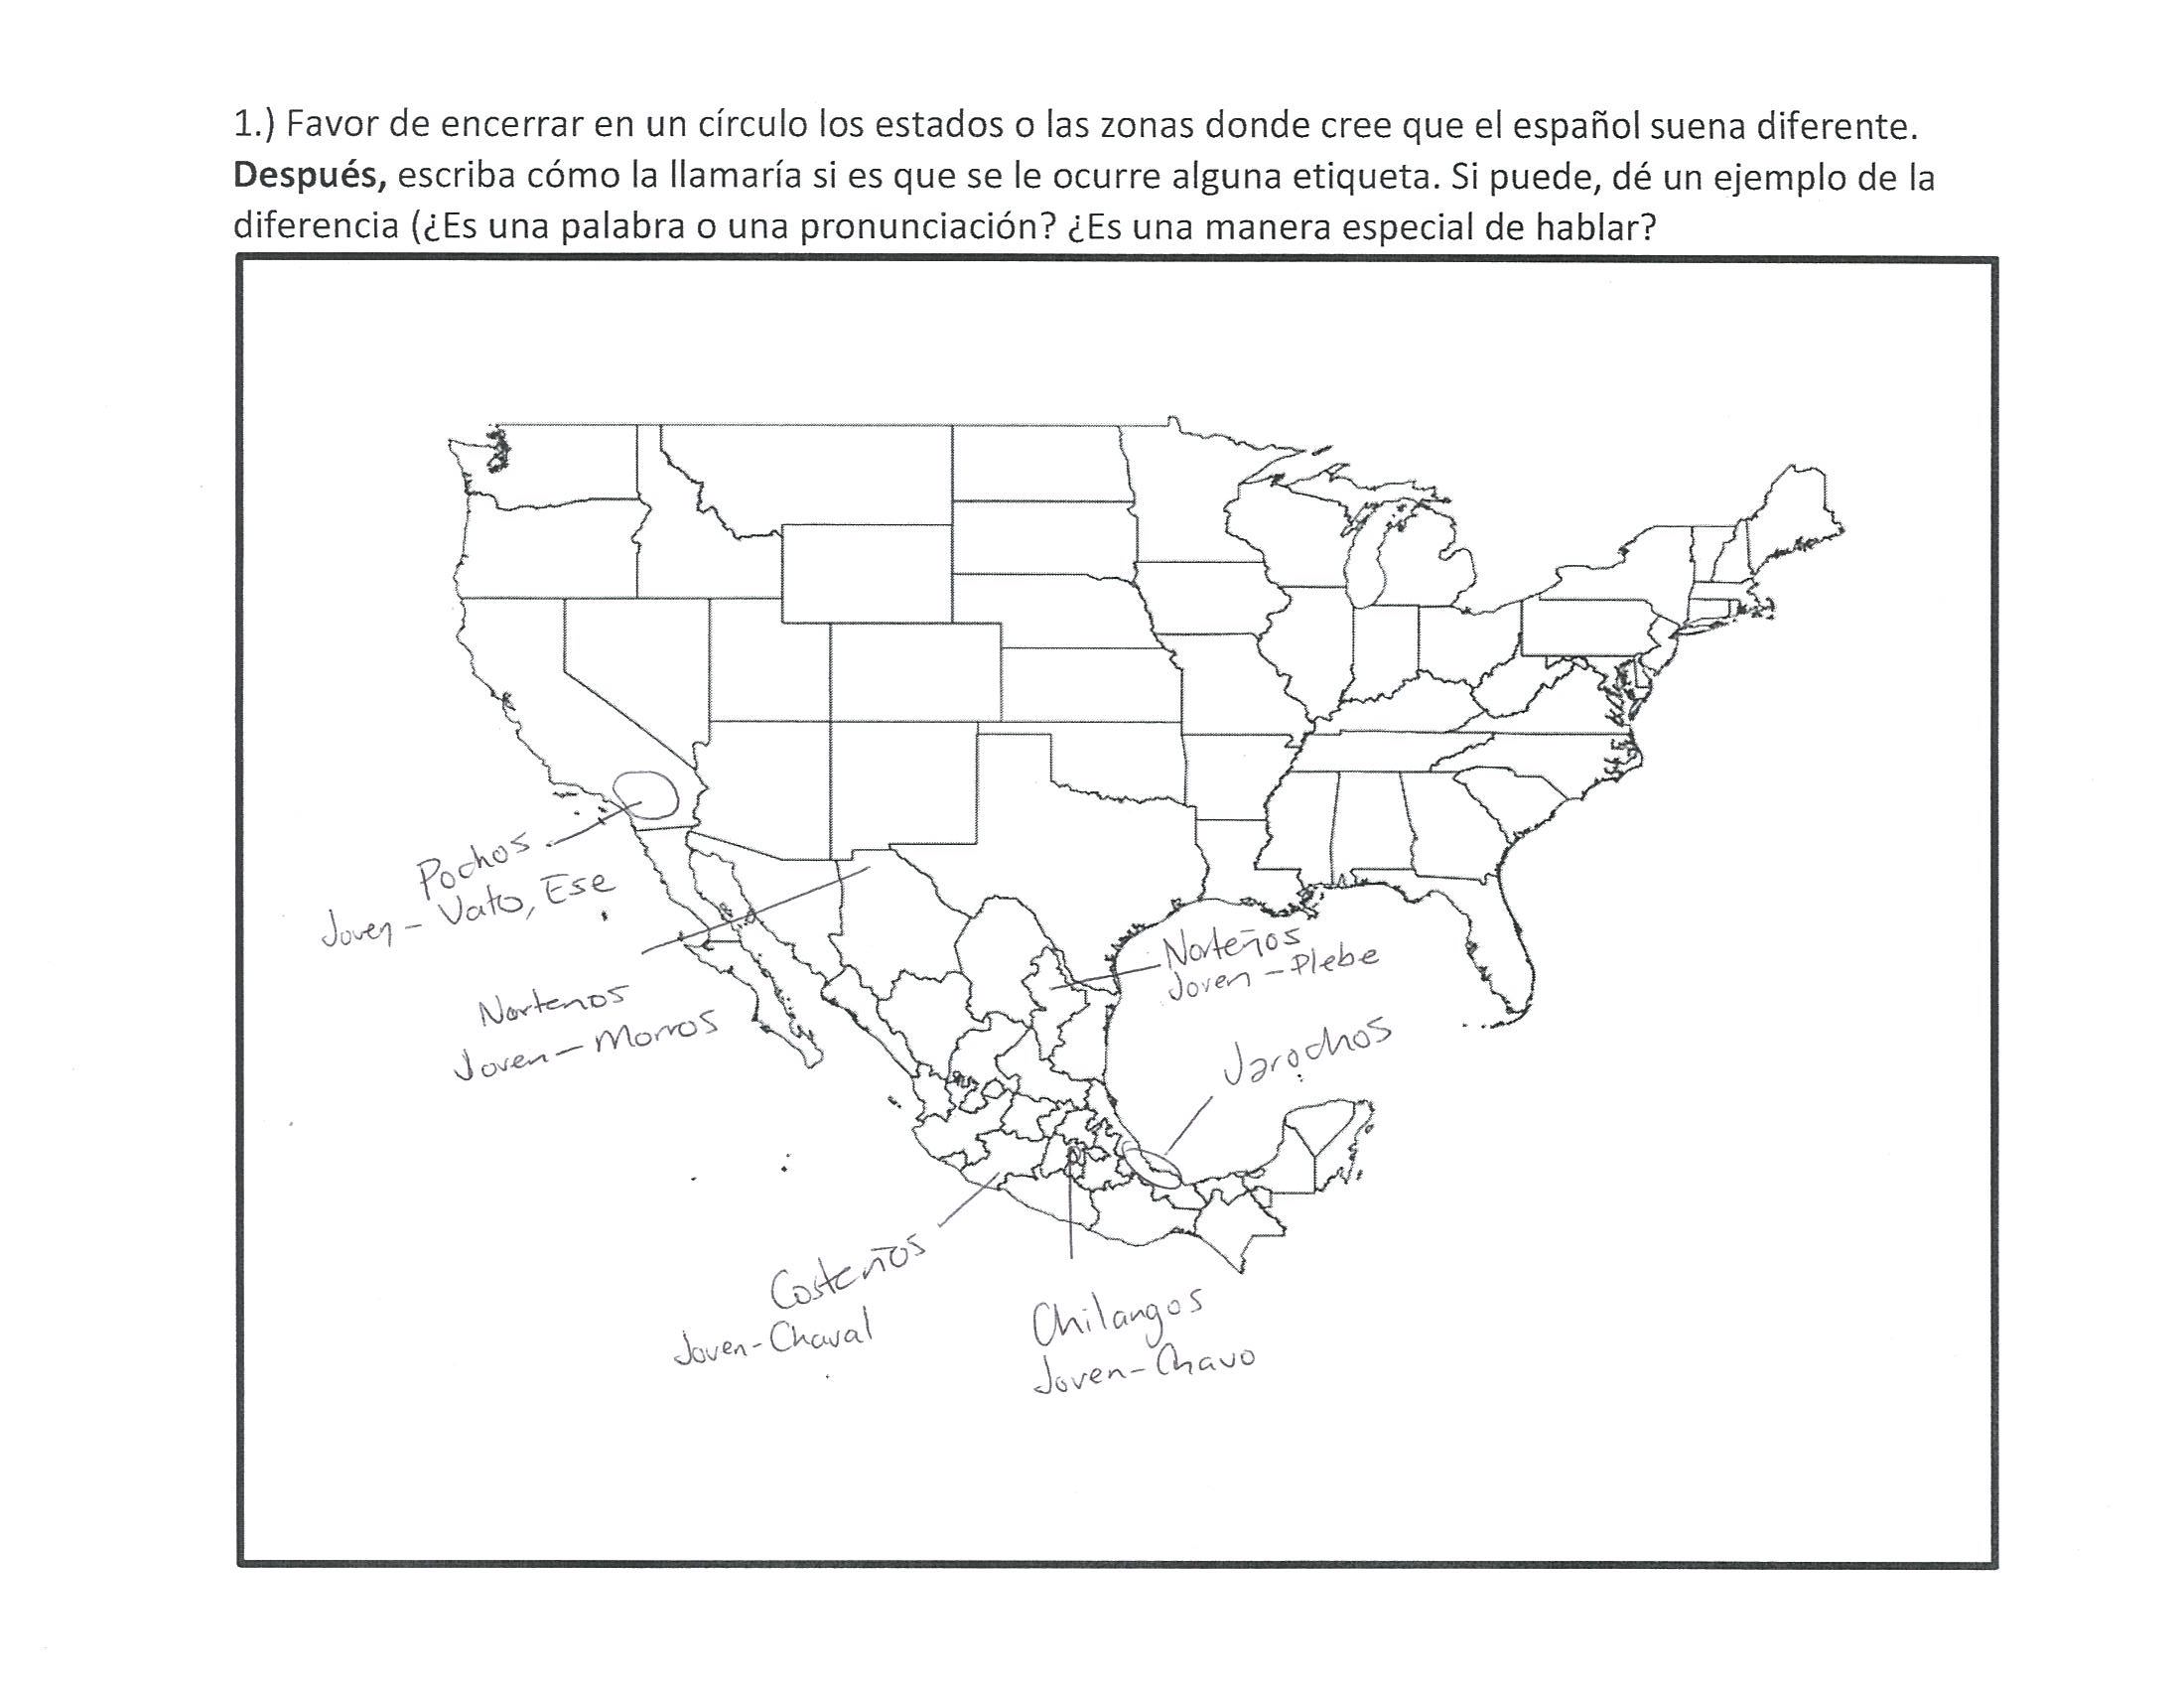 1.) Favor de encerrar en un círculo los estados o las zonas donde cree que el español suena diferente.
Después, escriba cómo la llamaría si es que se le ocurre alguna etiqueta. Si puede, dé un ejemplo de la
diferencia (¿Es una palabra o una pronunciación? ¿Es una manera especial de hablar?
Pochos
Joven - Vato, Ese
Norteños
Joven - Plebe
Nortenos
Joven - Morros
Jarochos
Costeños
Joven - Chaval
Chilangos
Joven - Chavo